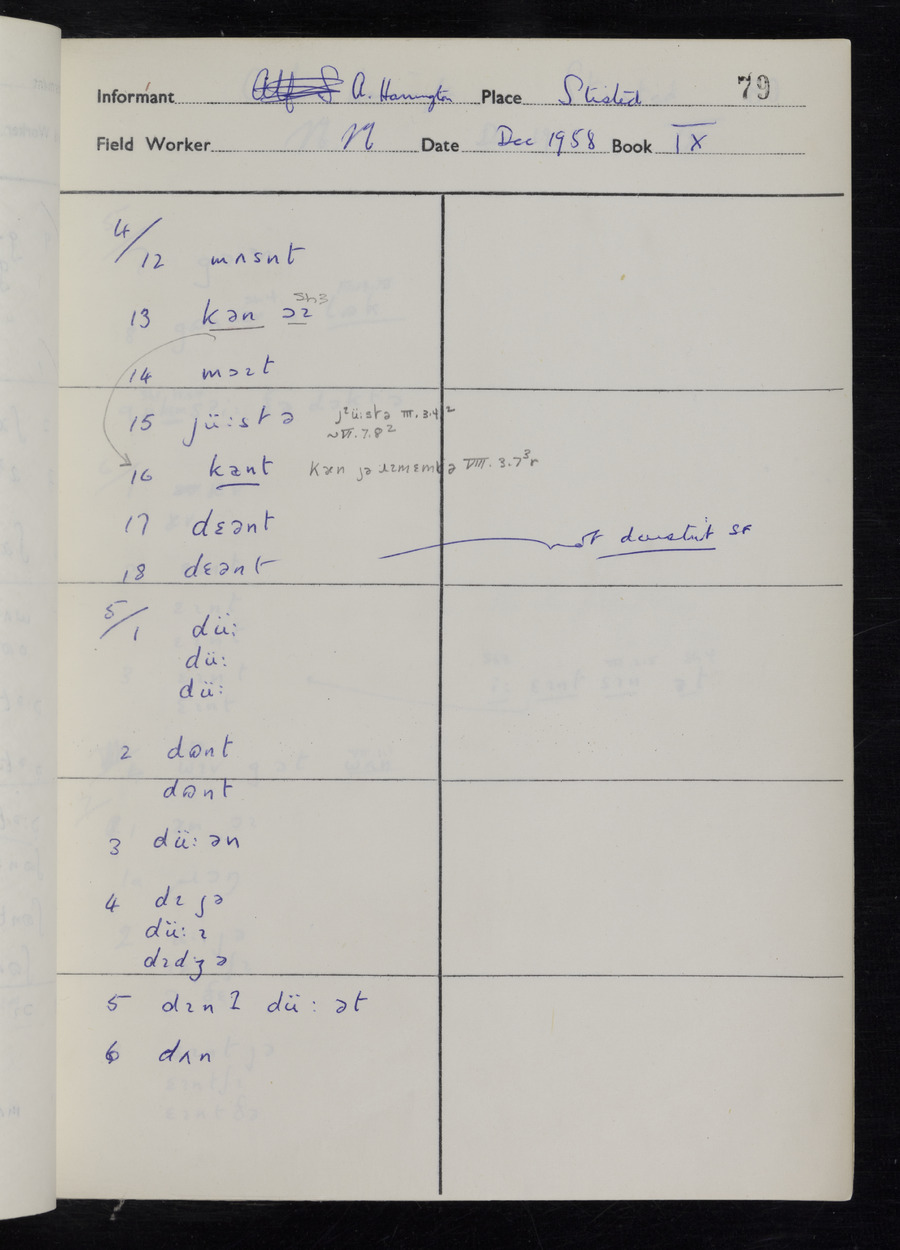 79
Informant A. Harrington Place Stisted
Field Worker N Date Dec 1958 Book IX
4/12 mʌsnt
13 kən əɪ
14 mɔɪt
15 jü:stə jᶻü:stə III.3.4²
~VI.7.8²
16 kənt kæn jə ɹɪmɛmbə VIII.3.7³r
17 dɛənt
18 dɛənt
5/1 dü:
dü:
dü:
2 dɷnt
dɷnt
3 dü:ən
4 dɪ ȷə
dü:ɪ
dɪdʒə
5 dɪn I dü: ət
6 dʌn